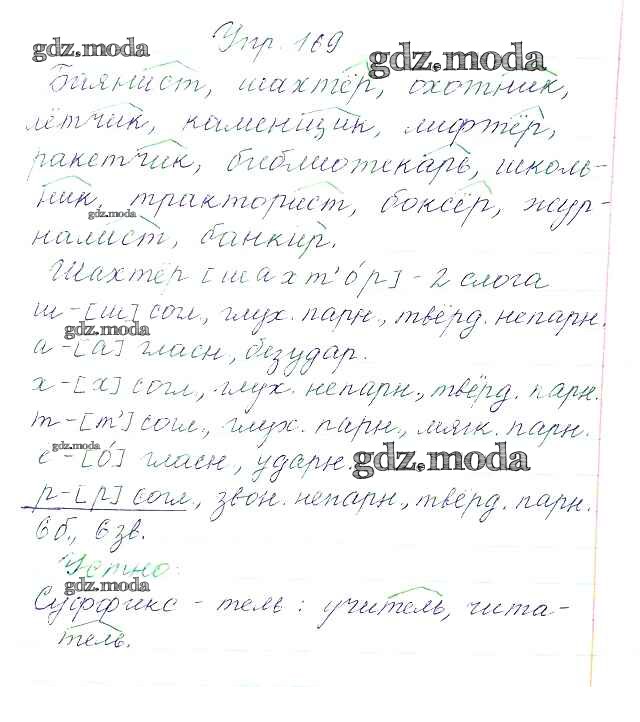 Упр. 169
gdz.moda
gdz.moda
Баянист, шахтёр, охотник,
лётчик, каменщик, лифтёр,
ракетчик, библиотекарь, школь-
ник, тракторист, боксёр, жур-
gdz.moda
налист, банкир.
Шахтёр [шахт'о́р] - 2 слога
ш - [ш] согл., глух. парн., твёрд. непарн.
gdz.moda
а - [а] гласн, безудар.
х - [х] согл., глух. непарн., твёрд. парн.
т - [т'] согл., глух. парн, мягк. парн.
gdz.moda
ё - [о́] гласн, ударн.
gdz.moda
р - [р] согл, звон. непарн., тверд. парн.
6 б., 6 зв.
Устно:
gdz.moda
Суффикс - тель : учитель, чита-
тель.